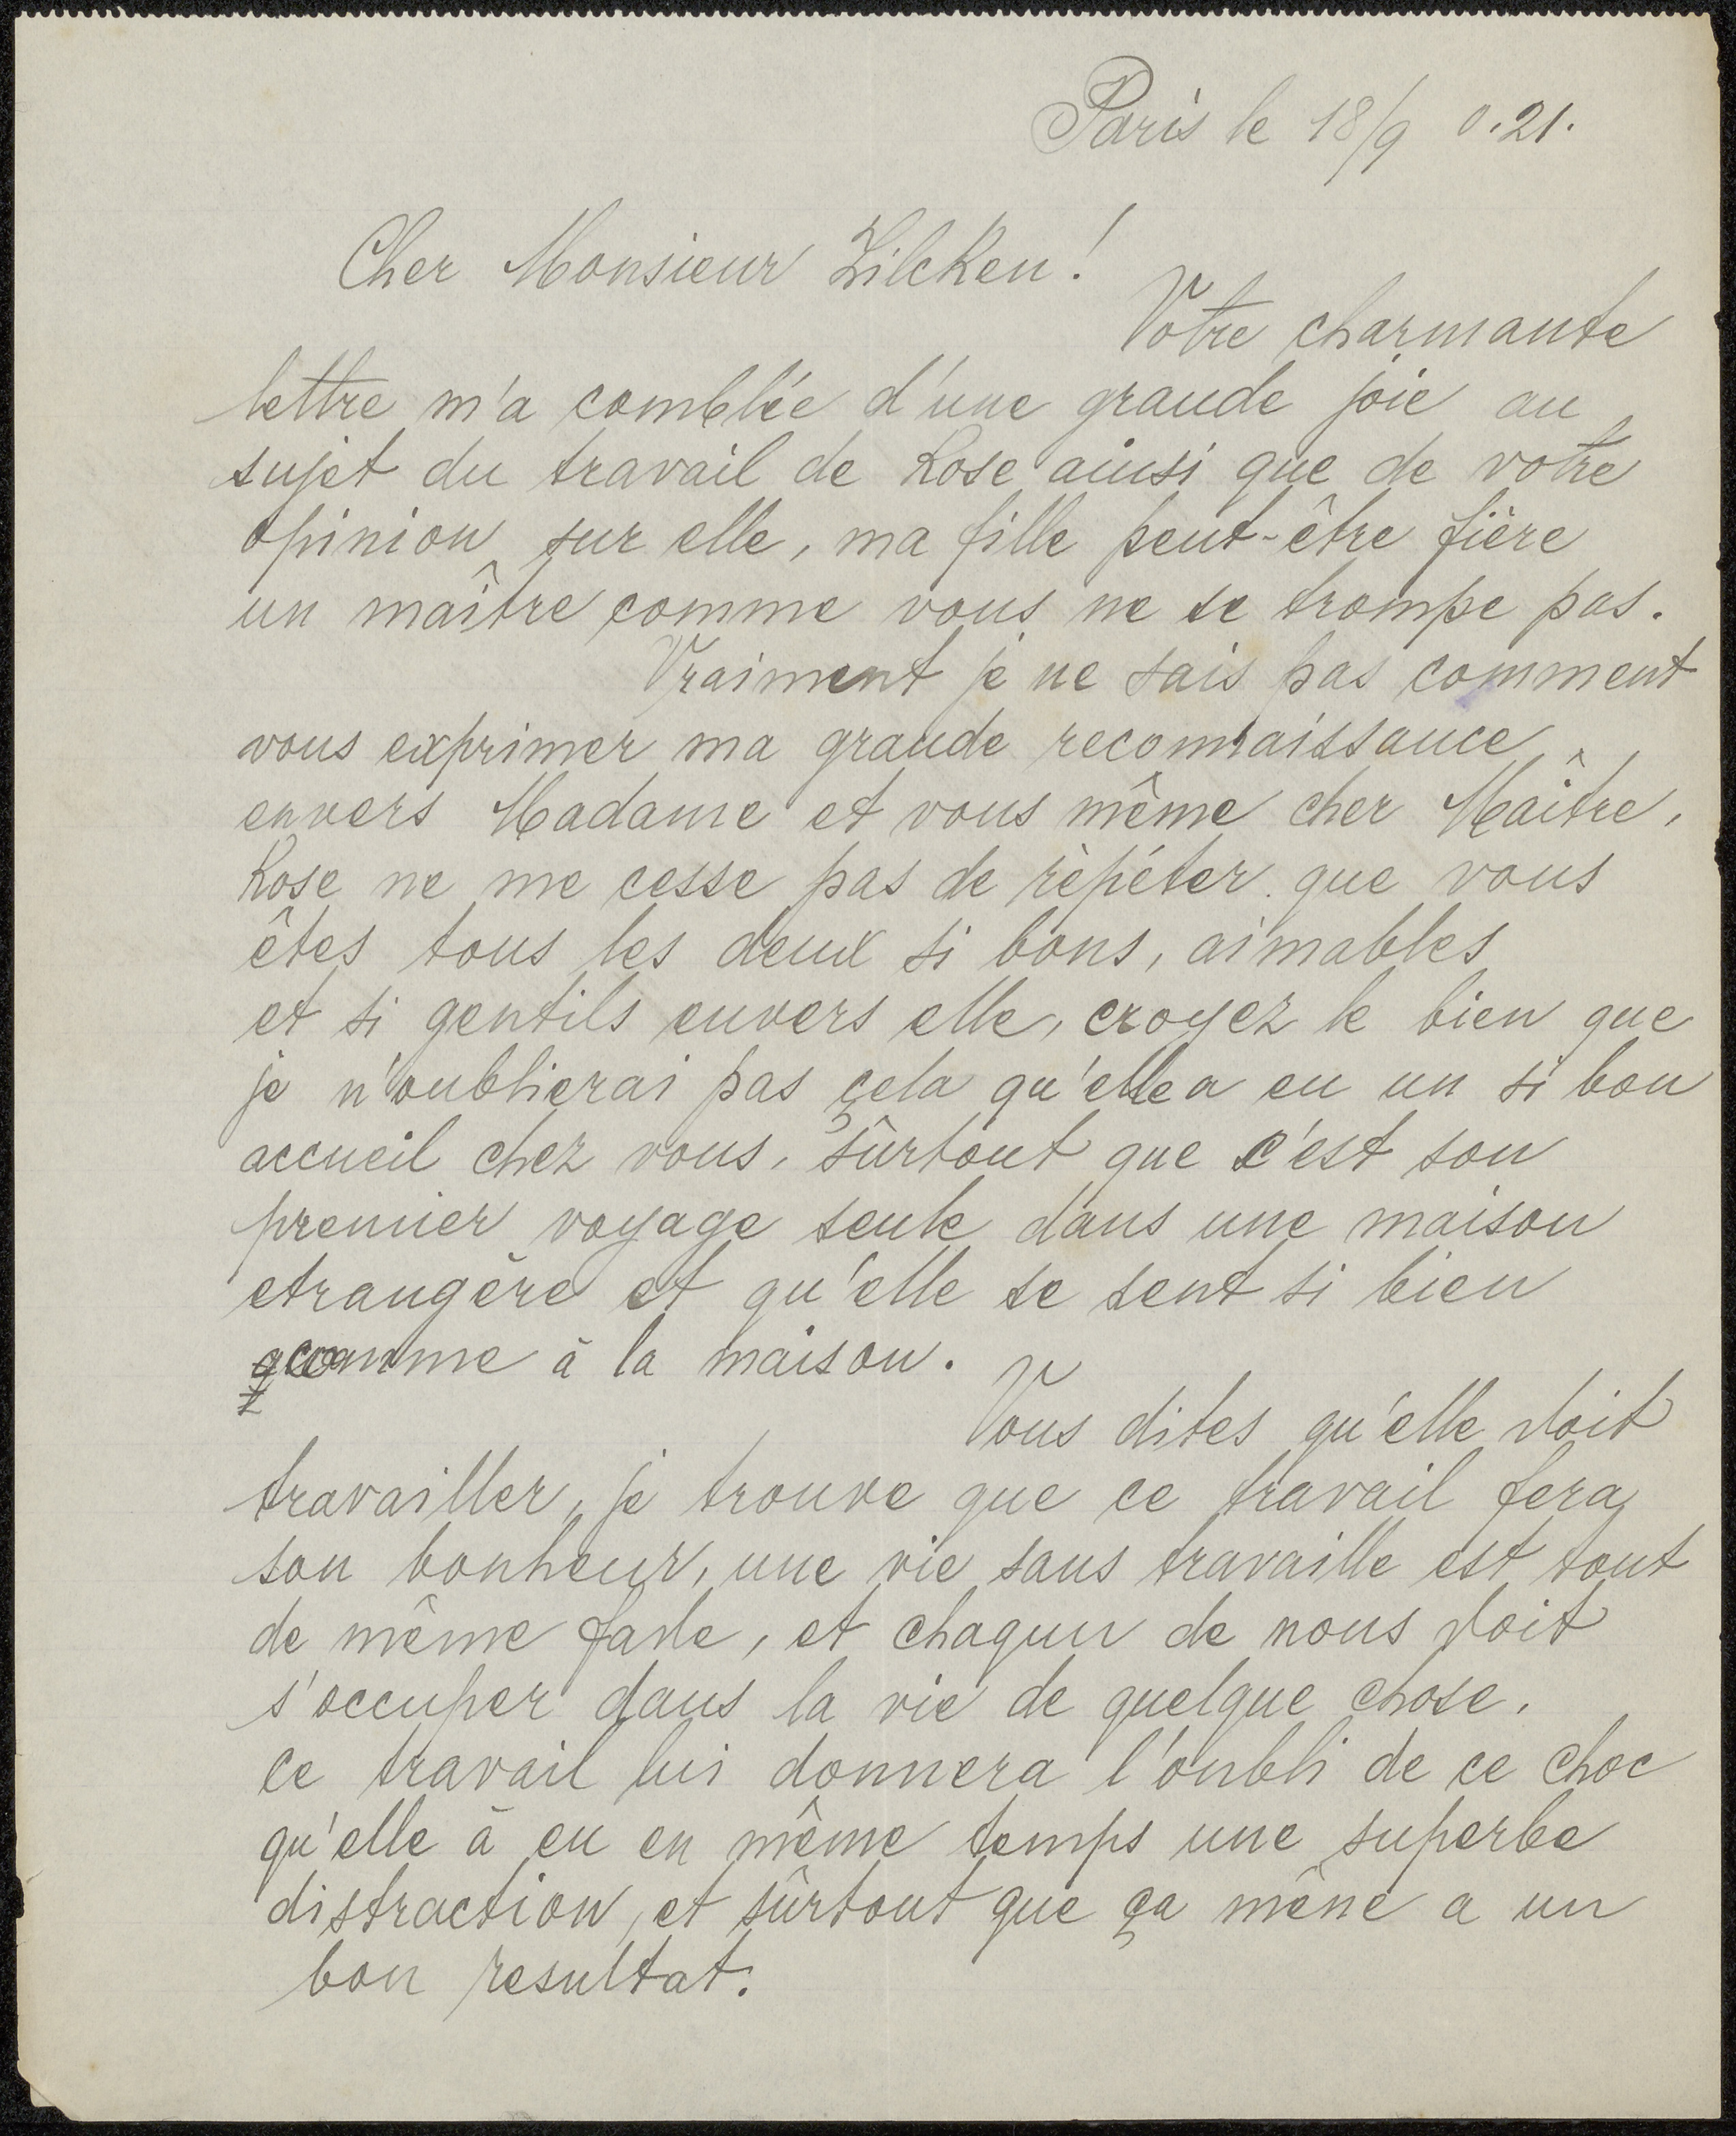 Paris le 18/9 0.21.
Cher Monsieur Zilcken!
Votre charmante
lettre m'a comblée d'une grande joie au
sujet du travail de Rose ainsi que de votre
opinion sur elle, ma fille peut-être fière
un maître comme vous ne se trompe pas.
Vraiment je ne sais pas comment
vous exprimer ma grande reconnaissance
envers Madame et vous même cher Maître,
Rose ne me cesse pas de rèpéter que vous
êtes tous les deux si bons, aimables
et si gentils envers elle, croyez le bien que
je n'oublierai pas çela qu'elle a eu un si bon
accueil chez vous, sûrtout que c'est son
premier voyage seule dans une maison
etrangère et qu'elle se sent si bien
comme à la maison.
Vous dites qu'elle doit
travailler, je trouve que ce travail fera
son bonheur, une vie sans travaille est tout
de même fade, et chaqun de nous doit
s'occuper dans la vie de quelque chose.
Ce travail lui donnera l'oubli de ce choc
qu'elle à eu en même temps une superbe
distraction, et sûrtout que ça mêne a un
bon resultat.